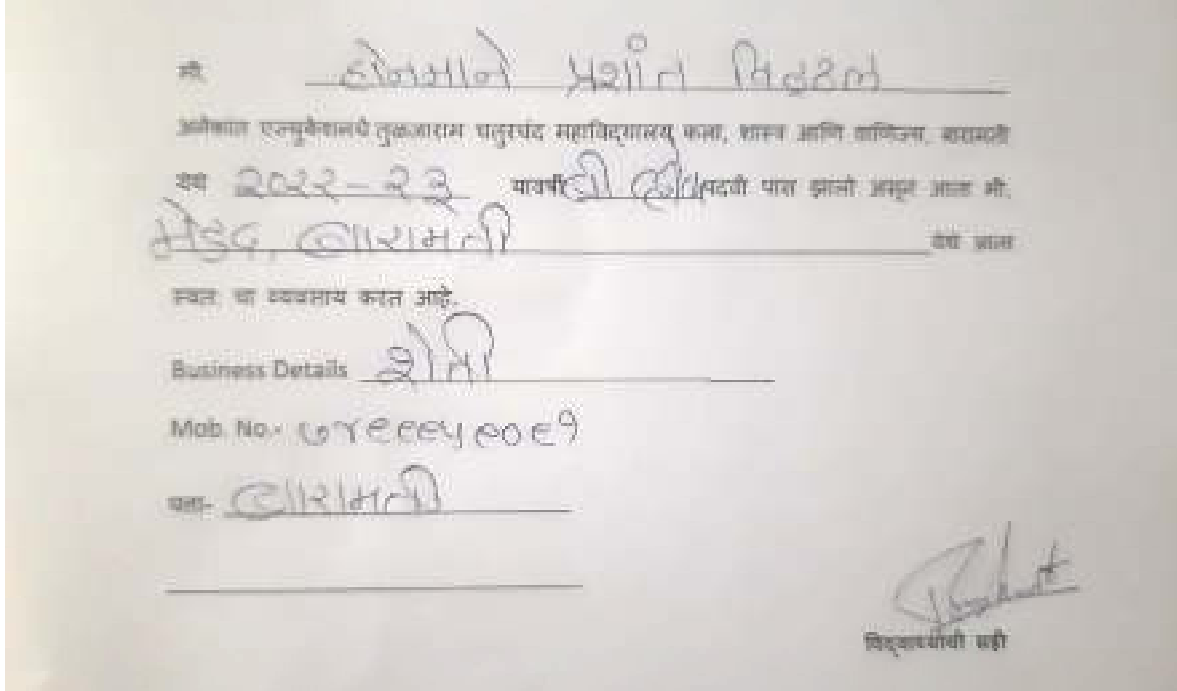 मी, होनमाने प्रशांत विठ्ठल
अनेकांत एज्युकेशनचे तुळजाराम चतुरचंद महाविद्यालय कला, शास्त्र आणि वाणिज्य, बारामती
येथे २०२२-२३ यावर्षी बी पदवी पास झालो असून आता मी,
मेडद, बारामती येथे आता
स्वतः चा व्यवसाय करत आहे.
Business Details शेती
Mob. No.- ७४९९९५९०९१
पत्ता- बारामती
Prashant
विद्यार्थ्याची सही